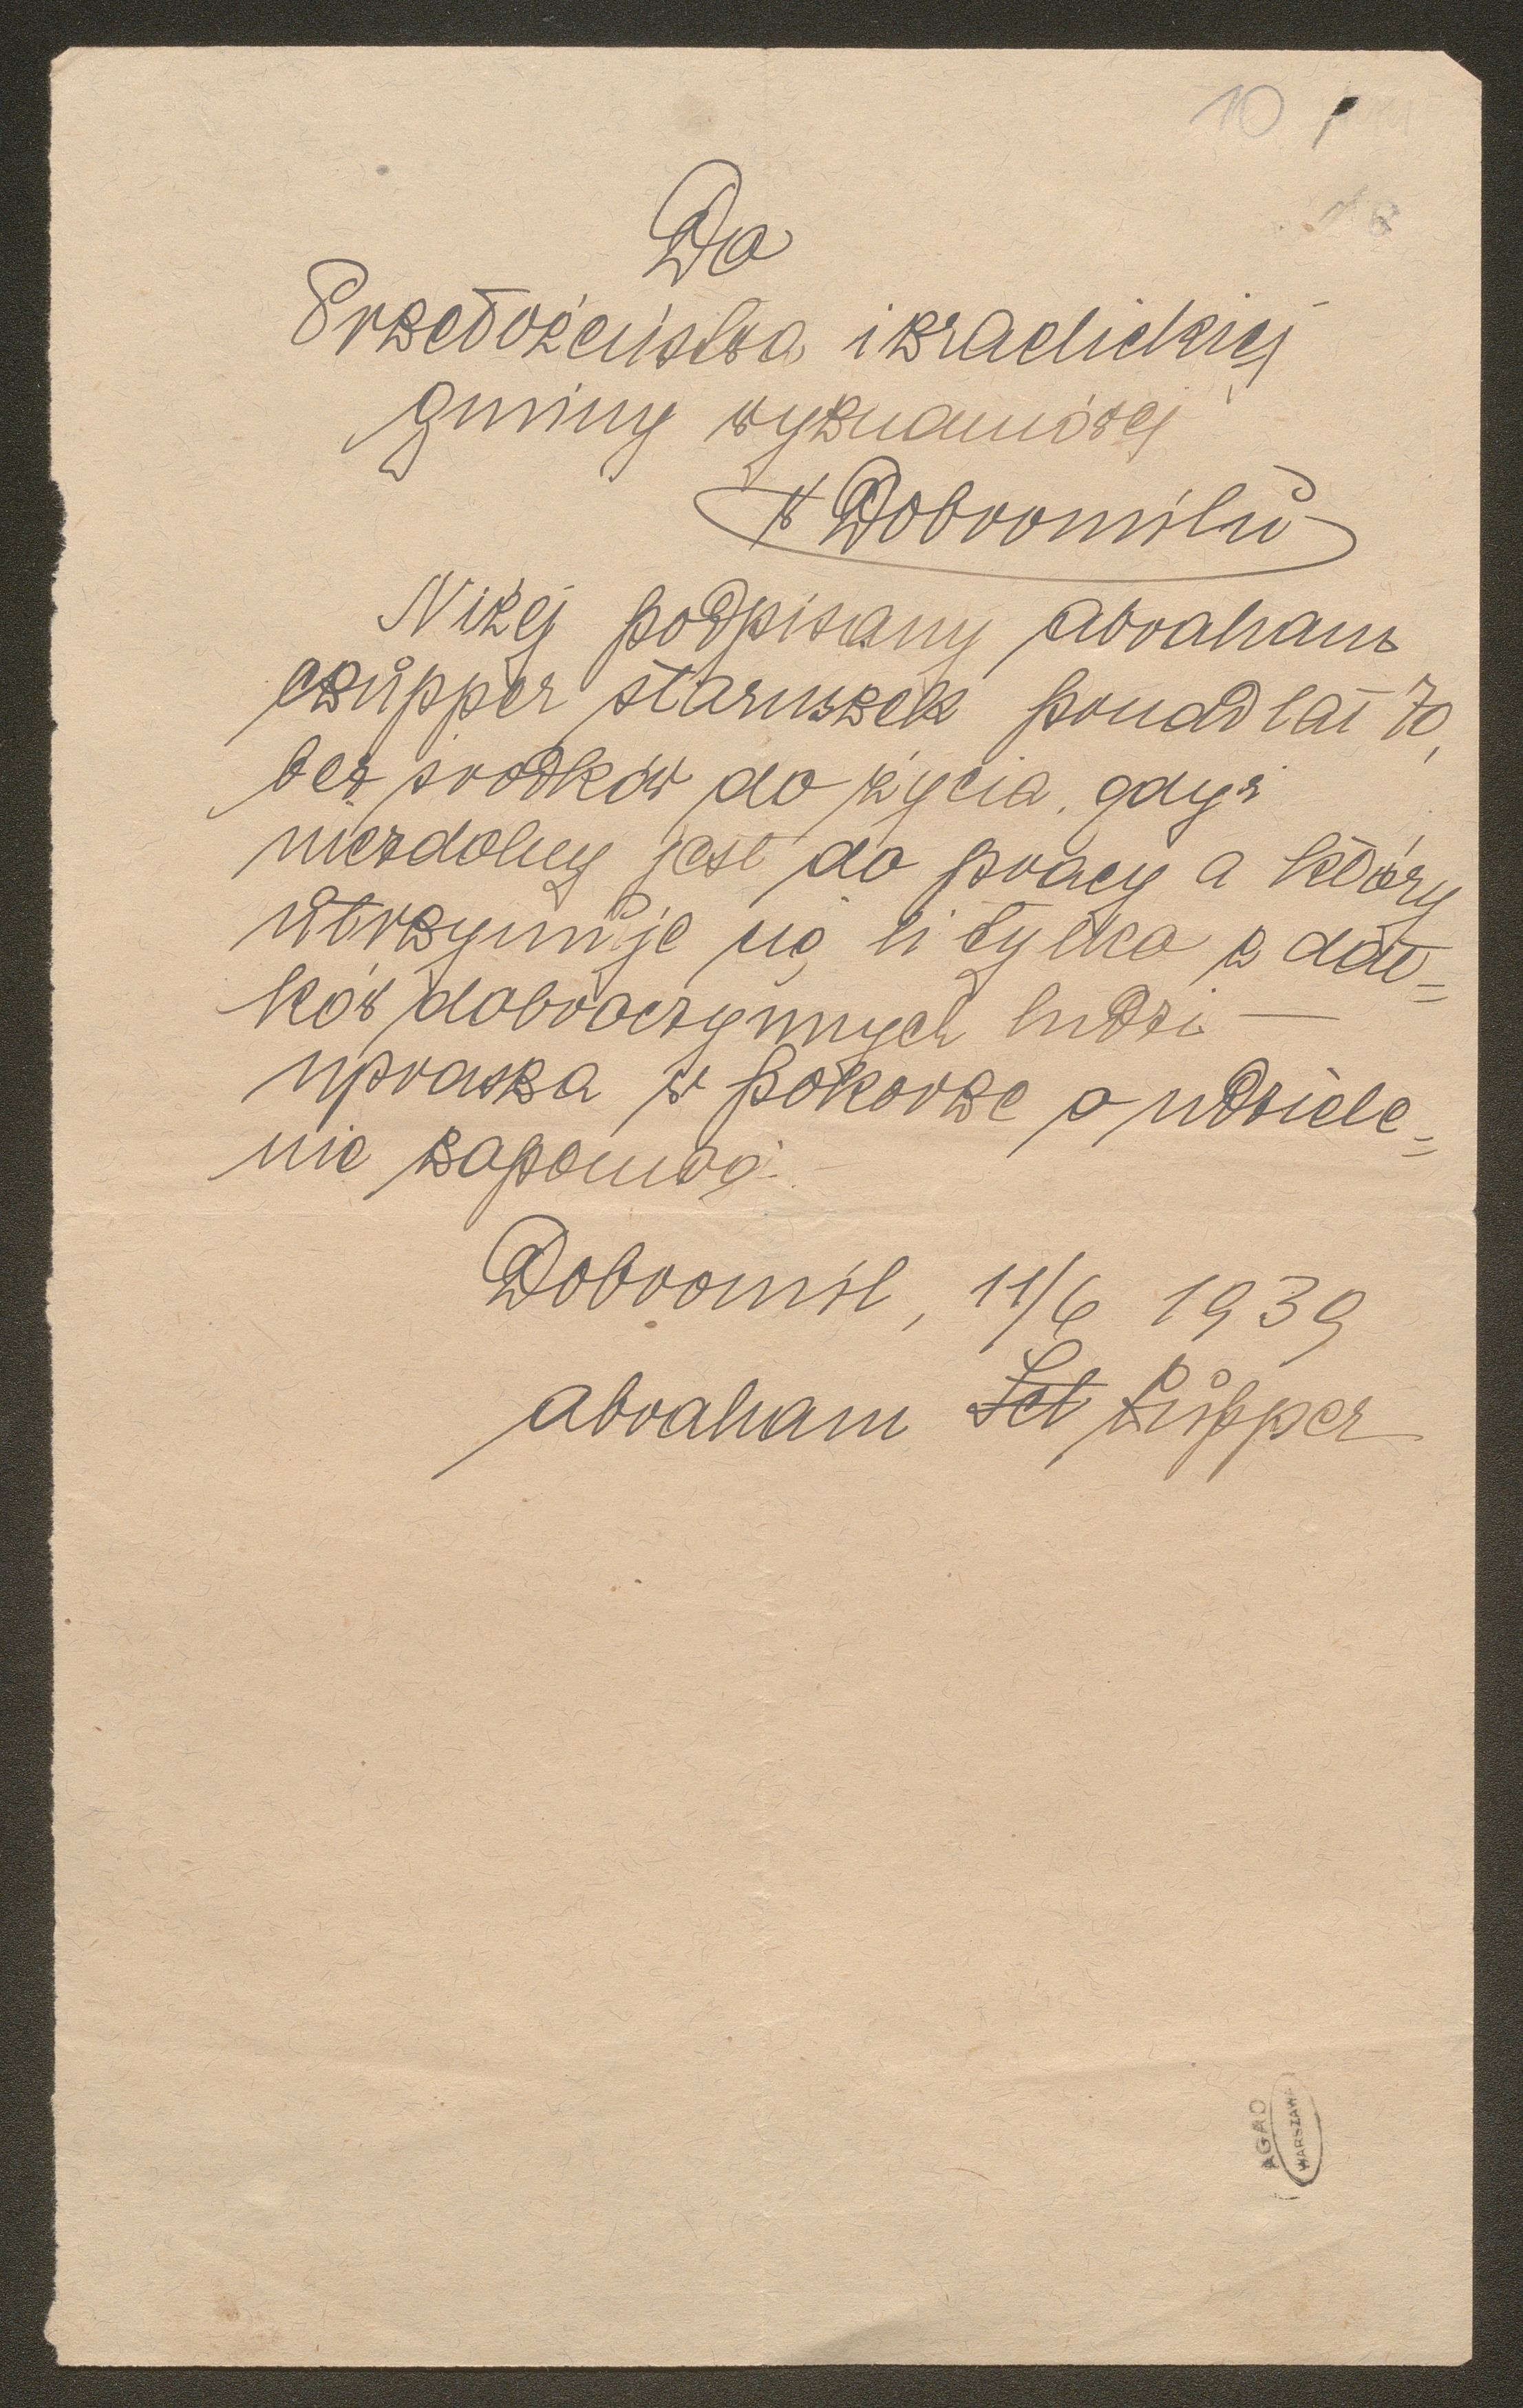 10
Do
Przełożeństwa izraelickiej
gminy wyznaniowej
w Dobromilu
Niżej podpisany Abraham
staruszek ponad lat 70,
bez środków do życia, gdyż
niezdolny jest do pracy a który
utrzymuje się li tylko z dat=
ków dobroczynnych ludzi —
uprasza w pokorze o udziele=
nie zapomogi.
Dobromil, 11/6 1939
Abraham
AGAD
WARSZAWA